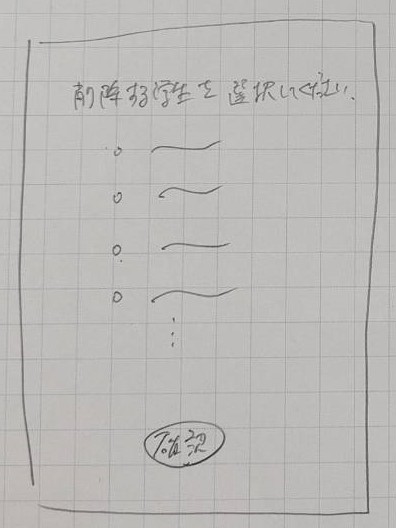 削除する学生を選択してください.
確認